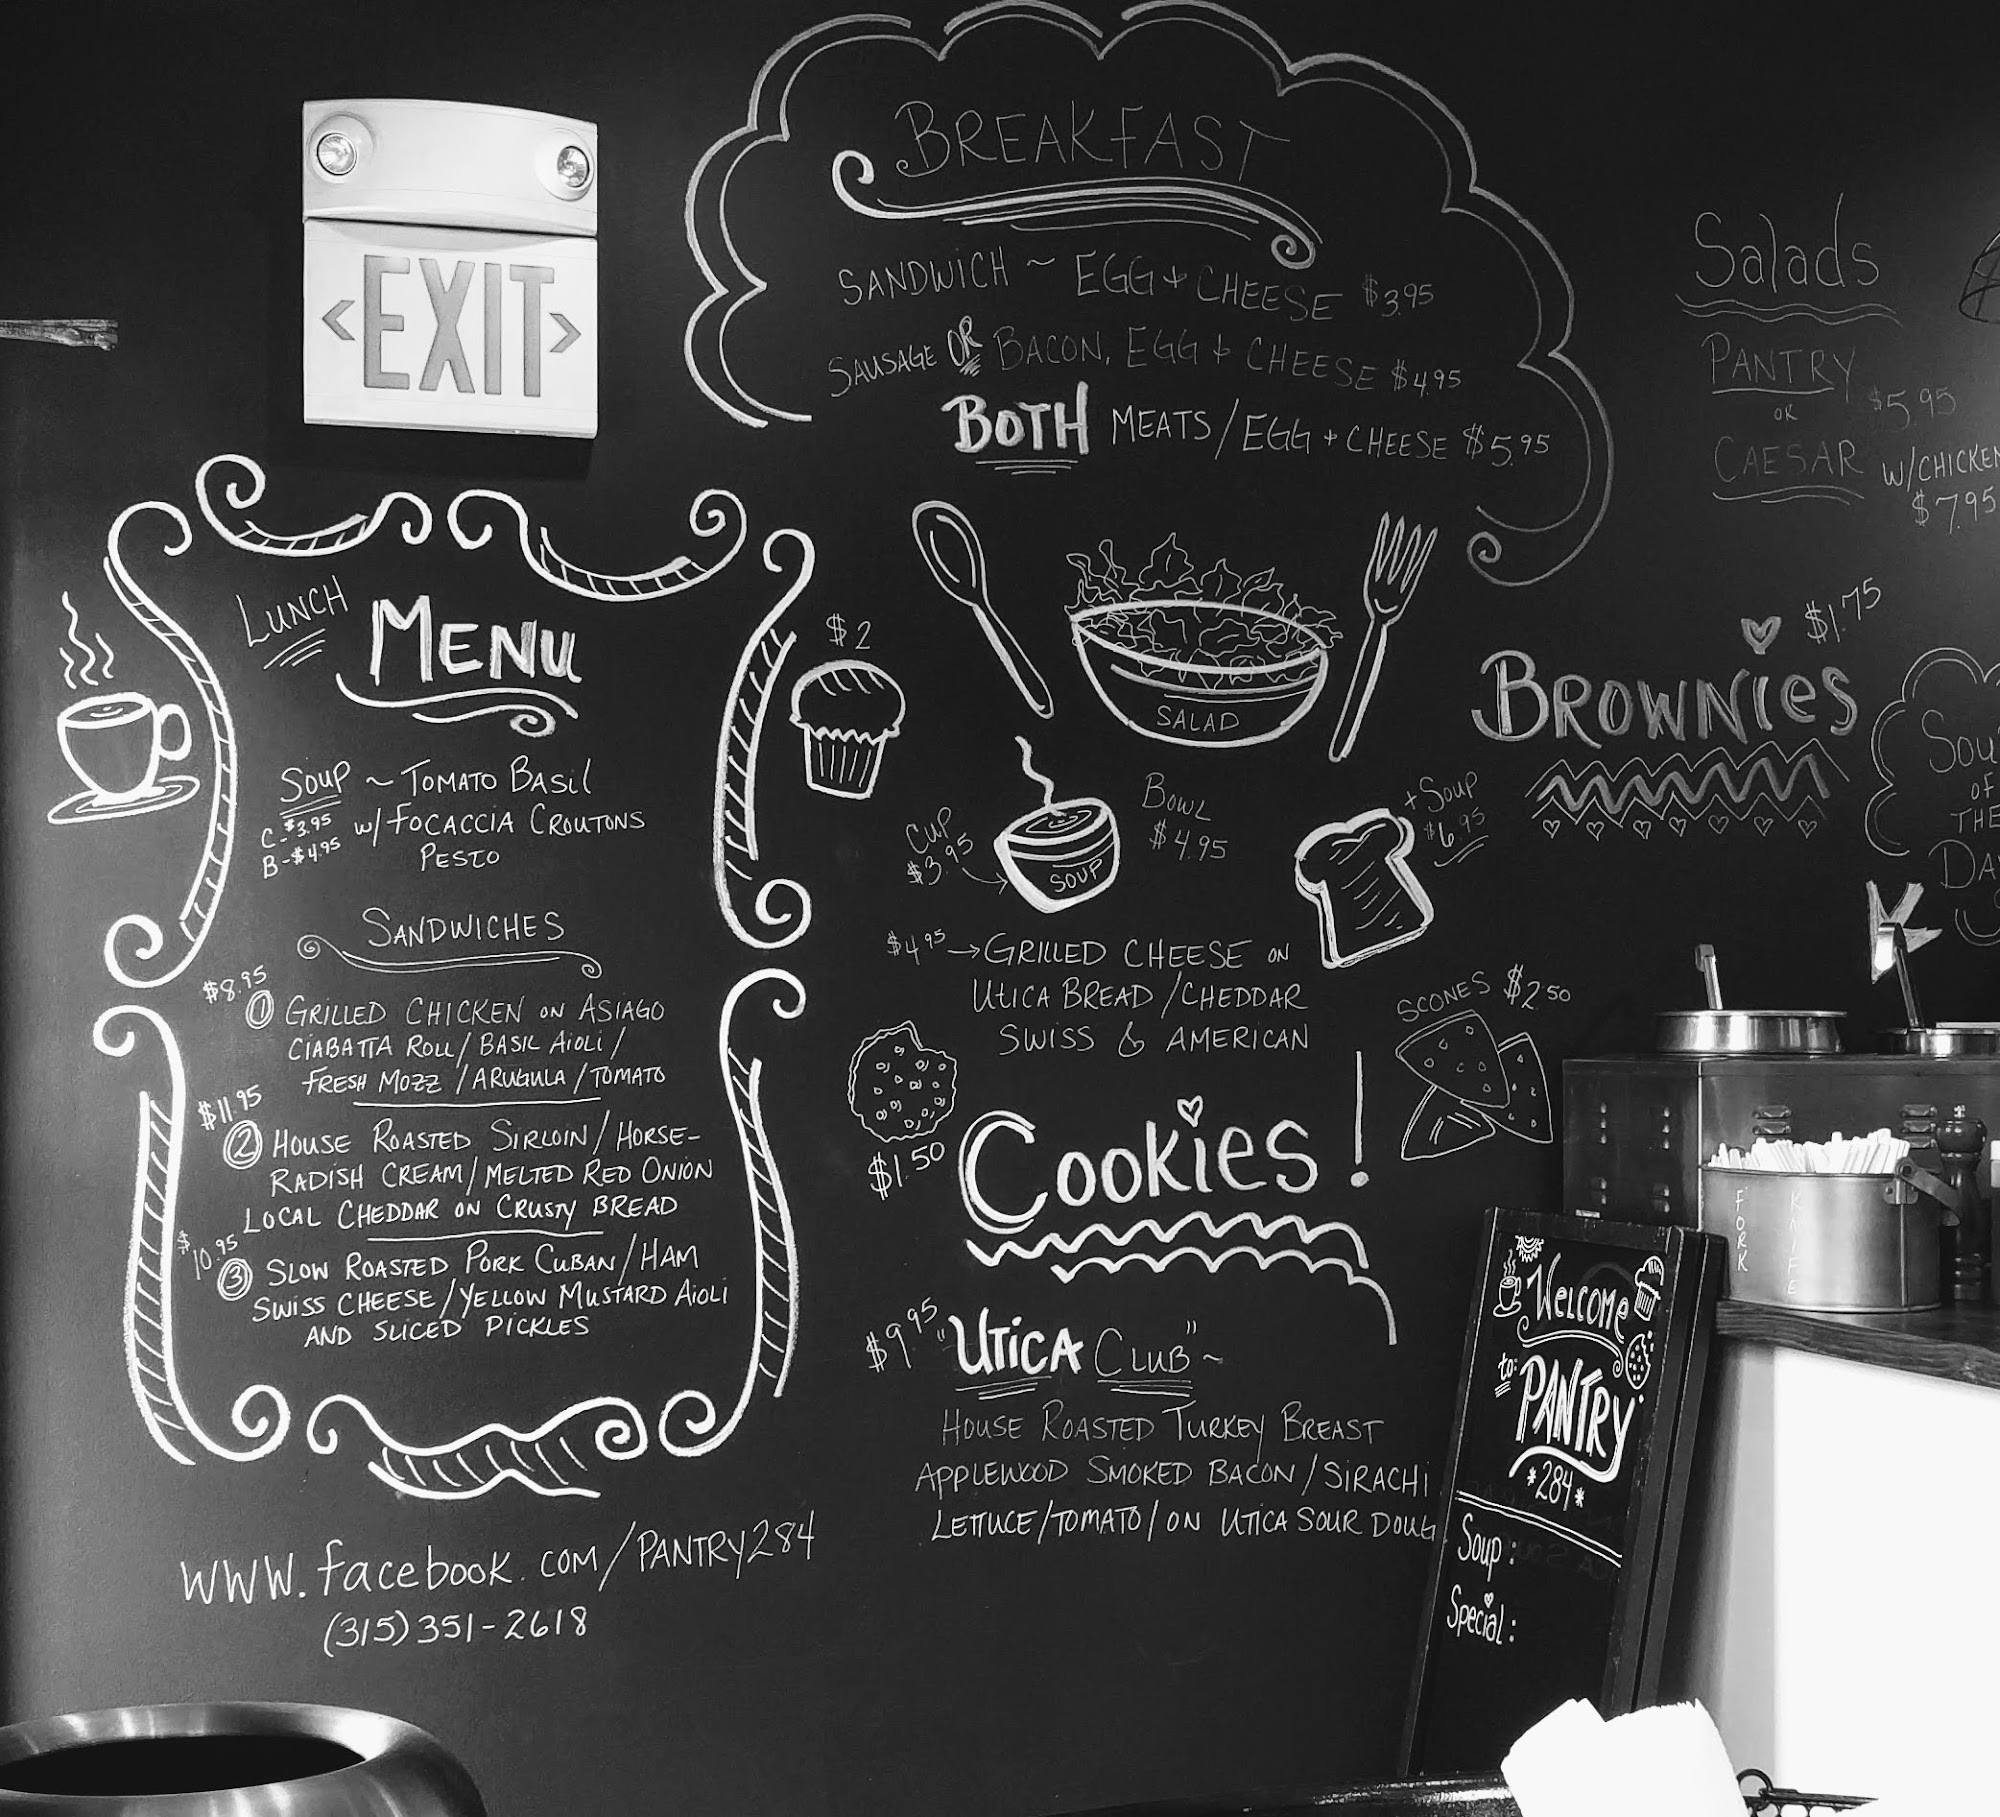 EXIT
BREAKFAST
SANDWICH ~ EGG + CHEESE $3.95
SAUSAGE OR BACON, EGG + CHEESE $4.95
BOTH MEATS/EGG + CHEESE $5.95
Salads
PANTRY
OR
CAESAR
$5.95
W/CHICKEN
$7.95
LUNCH
MENU
SOUP ~ TOMATO BASIL
C-$3.95 W/ FOCACCIA CROUTONS
B-$4.95 PESTO
SANDWICHES
$8.95
1 GRILLED CHICKEN ON ASIAGO
CIABATTA ROLL/BASIL AIOLI/
FRESH MOZZ/ARUGULA/TOMATO
$11.95
2 HOUSE ROASTED SIRLOIN/HORSE-
RADISH CREAM/MELTED RED ONION
LOCAL CHEDDAR ON CRUSTY BREAD
$10.95
3 SLOW ROASTED PORK CUBAN/HAM
SWISS CHEESE/YELLOW MUSTARD AIOLI
AND SLICED PICKLES
WWW.facebook.com/PANTRY284
(315)351-2618
$2
SALAD
CUP
$3.95
SOUP
BOWL
$4.95
+ SOUP
$6.95
$4.95 → GRILLED CHEESE ON
UTICA BREAD/CHEDDAR
SWISS & AMERICAN
$1.50
COOKIES!
SCONES $2.50
$9.95 "UTICA CLUB" ~
HOUSE ROASTED TURKEY BREAST
APPLEWOOD SMOKED BACON/SIRACHI
LETTUCE/TOMATO/ON UTICA SOUR DOUG
$1.75
BROWNIES
SOU
OF
THE
DA
FORK
KNIFE
WELCOME
to:
PANTRY
*284*
Soup:
Special: